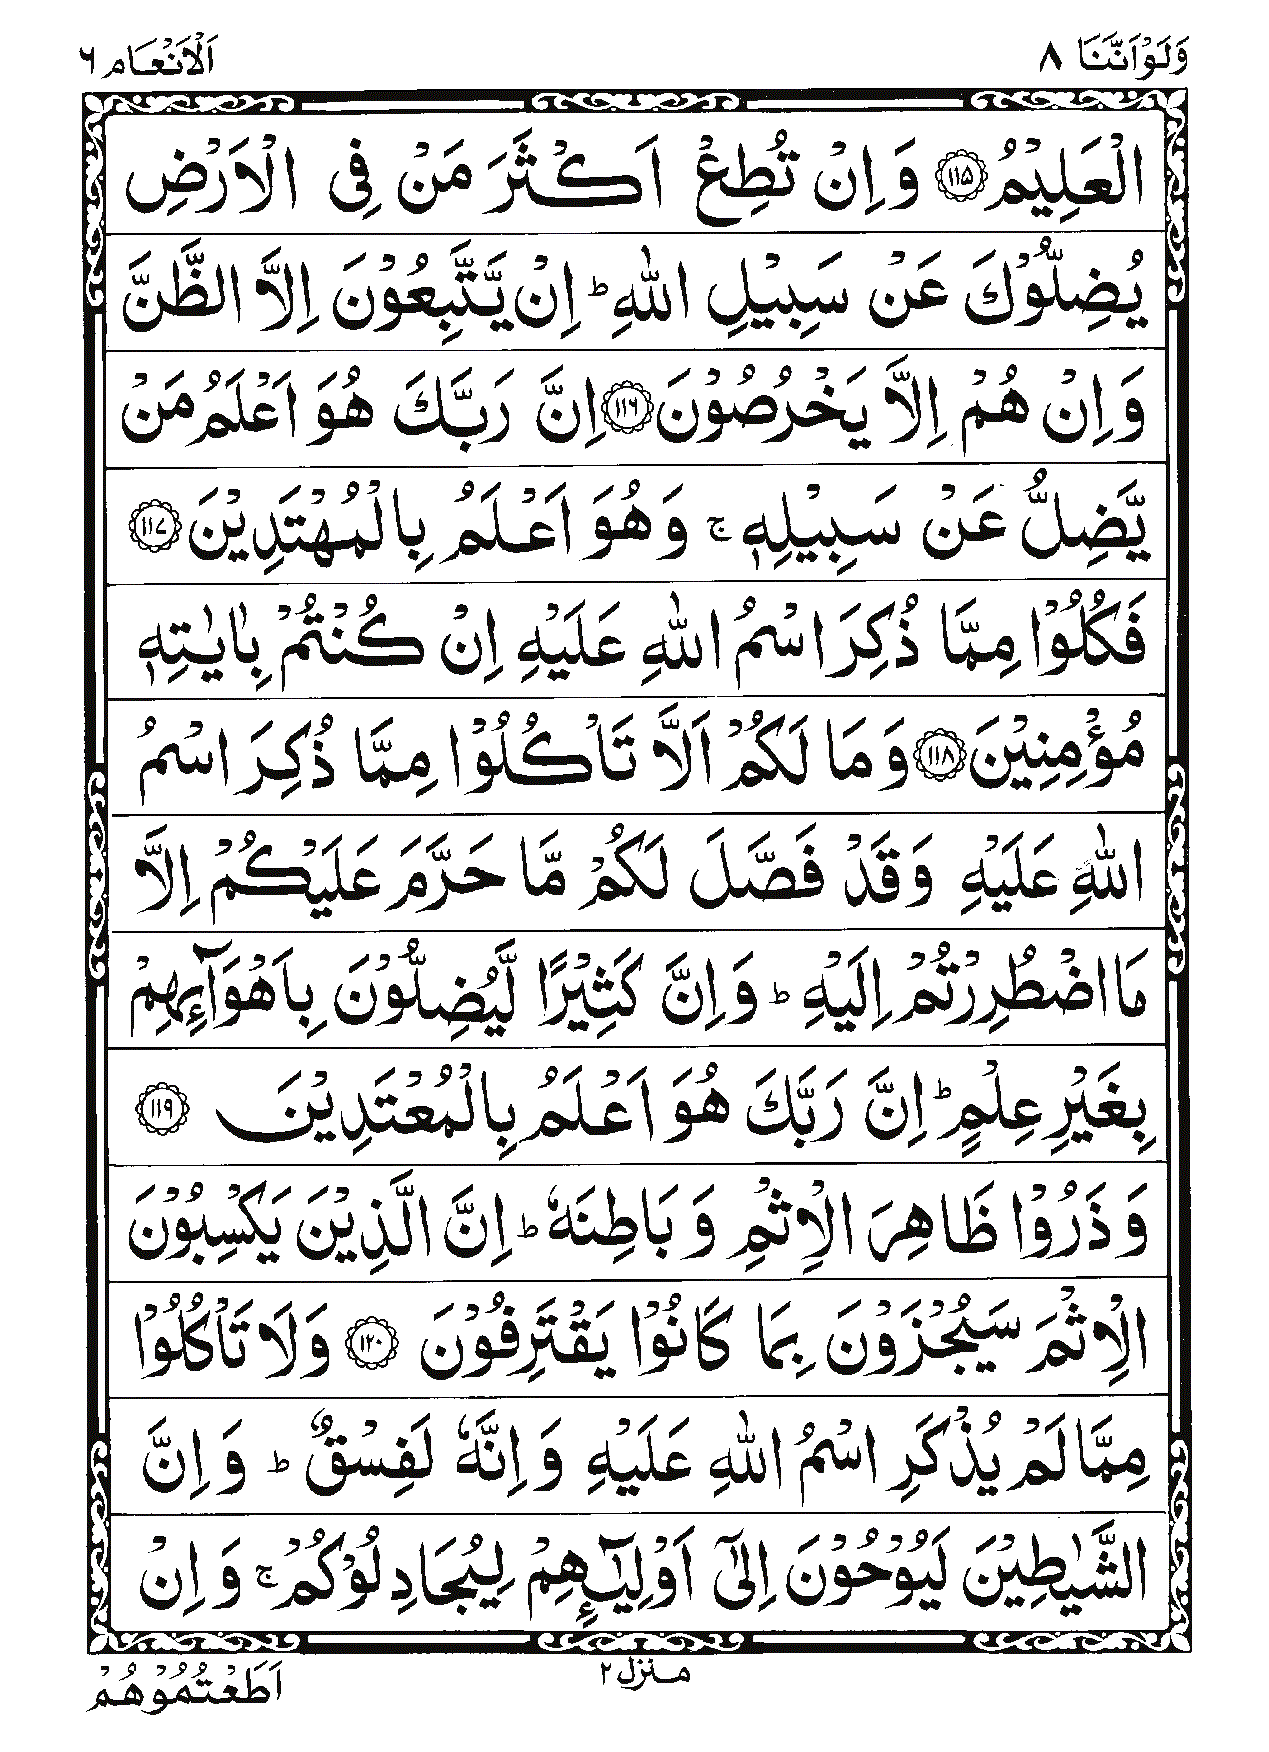 وَلَوْاَنَّنَا ٨
اَلْاَنْعَام ٦
الْعَلِيْمُ ﴿١١٥﴾ وَ اِنْ تُطِعْ اَكْثَرَ مَنْ فِی الْاَرْضِ
يُضِلُّوْكَ عَنْ سَبِيْلِ اللّٰهِ ؕ اِنْ يَّتَّبِعُوْنَ اِلَّا الظَّنَّ
وَ اِنْ هُمْ اِلَّا يَخْرُصُوْنَ ﴿١١٦﴾ اِنَّ رَبَّكَ هُوَ اَعْلَمُ مَنْ
يَّضِلُّ عَنْ سَبِيْلِهٖ ۚ وَ هُوَ اَعْلَمُ بِالْمُهْتَدِيْنَ ﴿١١٧﴾
فَكُلُوْا مِمَّا ذُكِرَ اسْمُ اللّٰهِ عَلَيْهِ اِنْ كُنْتُمْ بِاٰيٰتِهٖ
مُؤْمِنِيْنَ ﴿١١٨﴾ وَ مَا لَكُمْ اَلَّا تَاْكُلُوْا مِمَّا ذُكِرَ اسْمُ
اللّٰهِ عَلَيْهِ وَ قَدْ فَصَّلَ لَكُمْ مَّا حَرَّمَ عَلَيْكُمْ اِلَّا
مَا اضْطُرِرْتُمْ اِلَيْهِ ؕ وَ اِنَّ كَثِيْرًا لَّيُضِلُّوْنَ بِاَهْوَآئِهِمْ
بِغَيْرِ عِلْمٍ ؕ اِنَّ رَبَّكَ هُوَ اَعْلَمُ بِالْمُعْتَدِيْنَ ﴿١١٩﴾
وَ ذَرُوْا ظَاهِرَ الْاِثْمِ وَ بَاطِنَهٗ ؕ اِنَّ الَّذِيْنَ يَكْسِبُوْنَ
الْاِثْمَ سَيُجْزَوْنَ بِمَا كَانُوْا يَقْتَرِفُوْنَ ﴿١٢٠﴾ وَ لَا تَاْكُلُوْا
مِمَّا لَمْ يُذْكَرِ اسْمُ اللّٰهِ عَلَيْهِ وَ اِنَّهٗ لَفِسْقٌ ؕ وَ اِنَّ
الشَّيٰطِيْنَ لَيُوْحُوْنَ اِلٰۤی اَوْلِيٰٓئِهِمْ لِيُجَادِلُوْكُمْ ۚ وَ اِنْ
منزل ٢
اَطَعْتُمُوْهُمْ